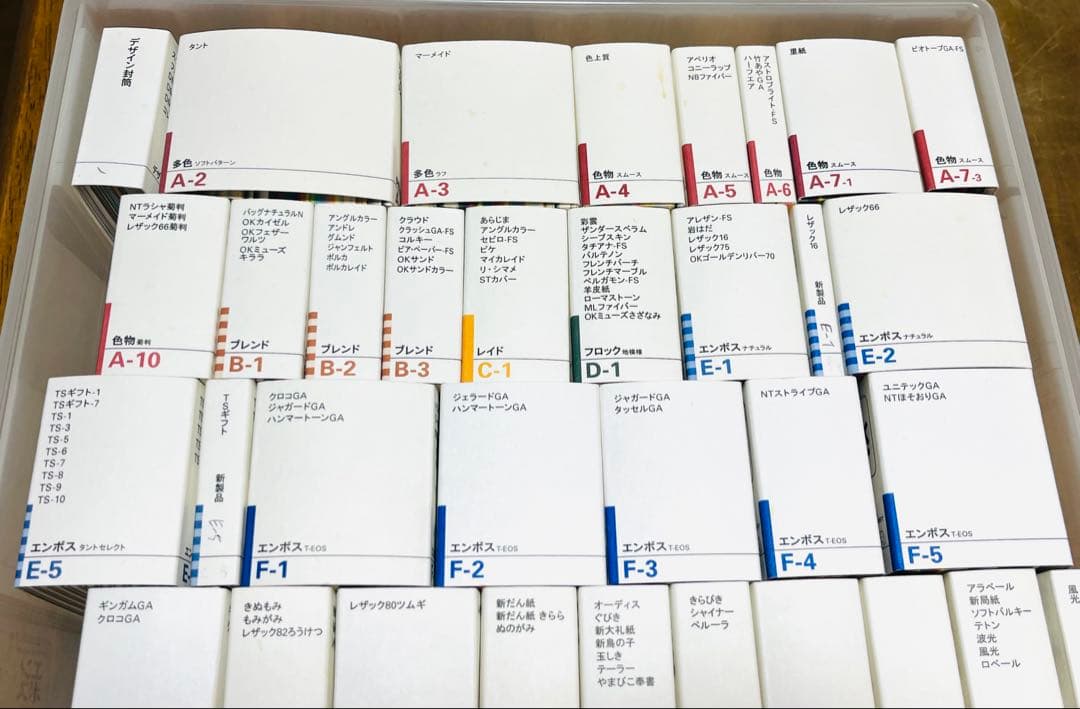 デザイン封筒
タント
多色 ソフトパターン
A-2
マーメイド
多色 ラフ
A-3
色上質
色物 スムース
A-4
アペリオ
コニーラップ
NBファイバー
色物 スムース
A-5
アストロブライト-FS
竹あやGA
ハーフエア
色物
A-6
里紙
色物 スムース
A-7-1
ビオトープGA-FS
色物 スムース
A-7-3
NTラシャ菊判
マーメイド菊判
レザック66菊判
色物 菊判
A-10
バッグナチュラルN
OKカイゼル
OKフェザー
ワルツ
OKミューズ
キララ
ブレンド
B-1
アングルカラー
アンドレ
グムンド
ジャンフェルト
ポルカ
ポルカレイド
ブレンド
B-2
クラウド
クラッシュGA-FS
コルキー
ビア・ペーパー-FS
OKサンド
OKサンドカラー
ブレンド
B-3
あらじま
アングルカラー
セピロ-FS
ピケ
マイカレイド
リ・シマメ
STカバー
レイド
C-1
彩雲
ザンダースペラム
シープスキン
タチアナ-FS
パルテノン
フレンチパーチ
フレンチマーブル
ペルガモン-FS
羊皮紙
ローマストーン
MLファイバー
OKミューズさざなみ
フロック 地模様
D-1
アレザン-FS
岩はだ
レザック16
レザック75
OKゴールデンリバー70
エンボス ナチュラル
E-1
レザック16
新製品
E-1
レザック66
エンボス ナチュラル
E-2
TSギフト-1
TSギフト-7
TS-1
TS-3
TS-5
TS-6
TS-7
TS-8
TS-9
TS-10
エンボス タントセレクト
E-5
TSギフト
新製品
E-5
クロコGA
ジャガードGA
ハンマートーンGA
エンボス T-EOS
F-1
ジェラードGA
ハンマートーンGA
エンボス T-EOS
F-2
ジャガードGA
タッセルGA
エンボス T-EOS
F-3
NTストライプGA
エンボス T-EOS
F-4
ユニテックGA
NTほそおりGA
エンボス T-EOS
F-5
ギンガムGA
クロコGA
きぬもみ
もみがみ
レザック82ろうけつ
レザック80ツムギ
新だん紙
新だん紙 きらら
ぬのがみ
オーディス
ぐびき
新大礼紙
新鳥の子
玉しき
テーラー
やまびこ奉書
きらびき
シャイナー
ペルーラ
アラベール
新局紙
ソフトバルキー
テトン
波光
風光
ロベール
風
光